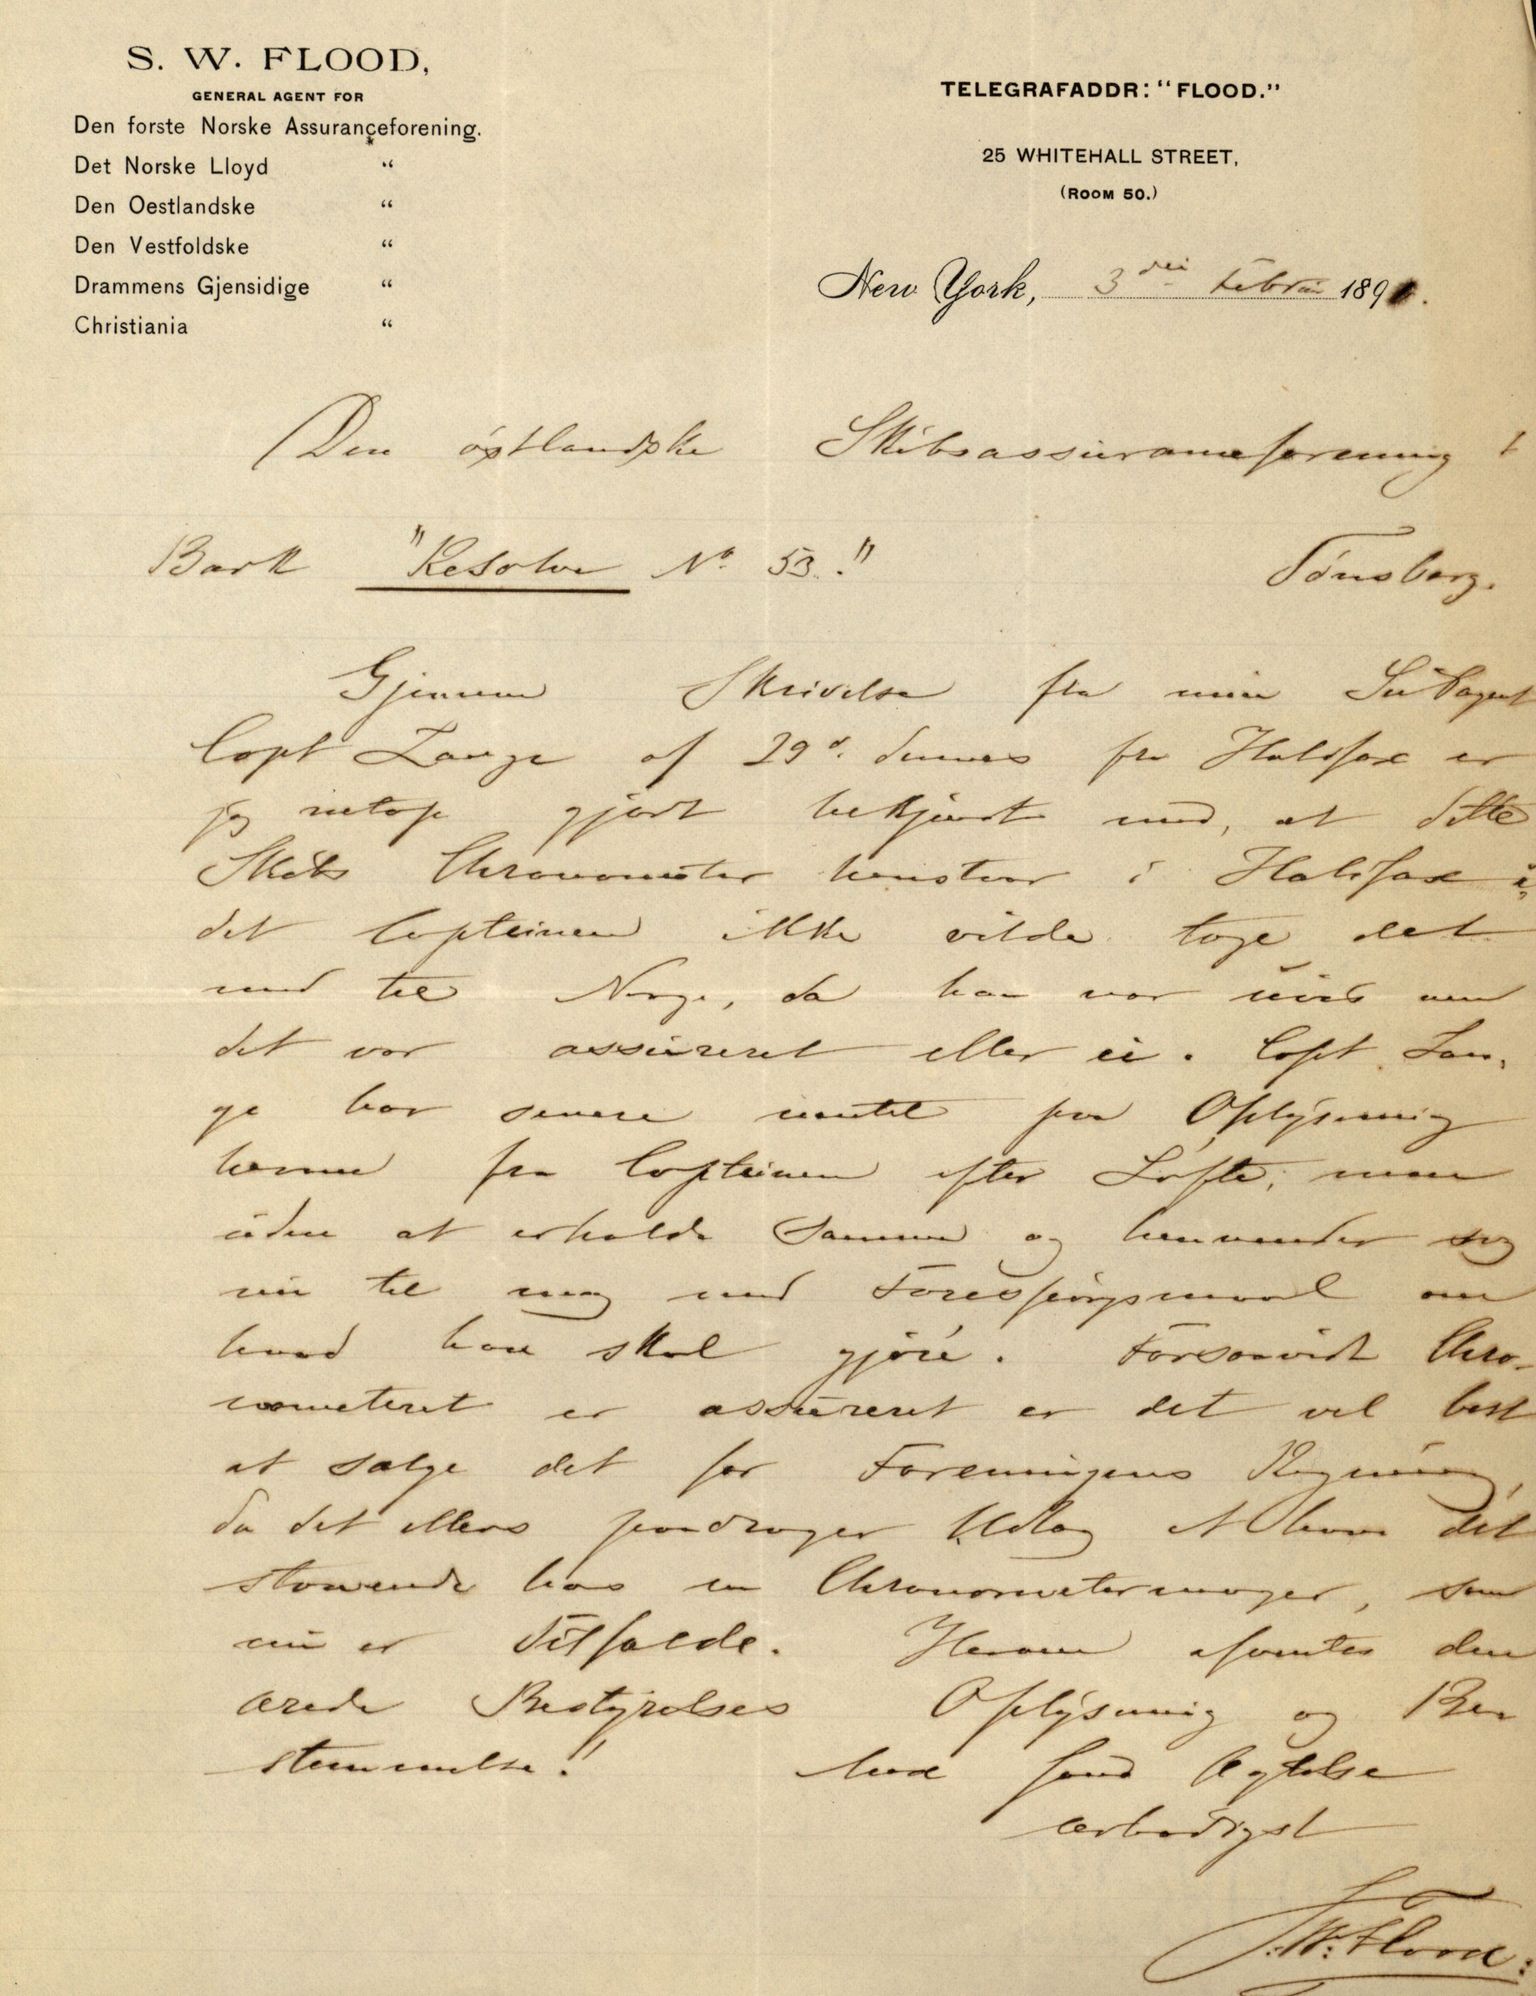 S. W. FLOOD,
GENERAL AGENT FOR
Den forste Norske Assuranceforening.
Det Norske Lloyd "
Den Oestlandske "
Den Vestfoldske "
Drammens Gjensidige "
Christiania "
TELEGRAFADDR: "FLOOD."
25 WHITEHALL STREET,
(ROOM 50.)
New York, 3die Februar 189
Den östlandske Skibsassuranceforening
Bark "Resolve No. 53."
Tönsberg.
Gjennem Skrivelse fra min Subagent
Capt Lange af 29d. dennes fra Halifax er
jeg netop gjort bekjendt med, at dette
Skibs Chronometer henstaar i Halifax i,
det Capteinen ikke vilde tage det
med til Norge, da han var uvis om
det var assureret eller ei. Capt. Lan,
ge har senere ventet paa Oplysning
herom fra Capteinen efter Löfte, men
uden at erholde samme og henvender sig
nu til mig med Forespörgsmaal om
hvad han skal gjöre. Forsaavidt Chro-
nometeret er assureret er det vel best
at sælge det for Foreningens Regning,
da det ellers paadrager Udlæg at have det
staaende hos en Chronometermager, som
nu er Tilfælde. Herom afventes den
ærede Bestyrelses Oplysning og Be-
stemmelse!
Med sand Agtelse
ærbödigst
S. W. Flood.